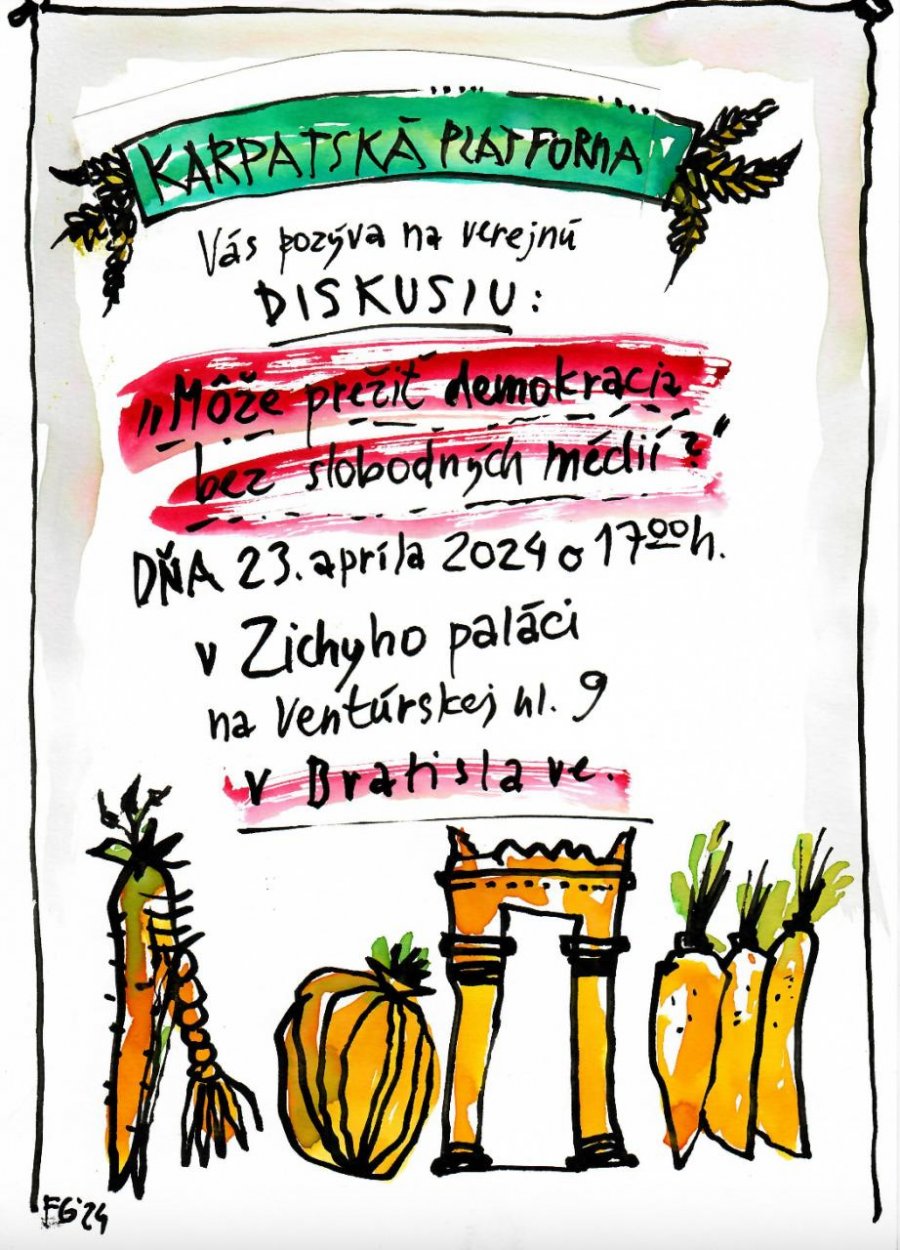 KARPATSKÁ PLATFORMA
Vás pozýva na verejnú
DISKUSIU:
„Môže prežiť demokracia
bez slobodných médií?“
DŇA 23. apríla 2024 o 17⁰⁰h.
v Zichyho paláci
na Ventúrskej ul. 9
v Bratislave.
FG'24